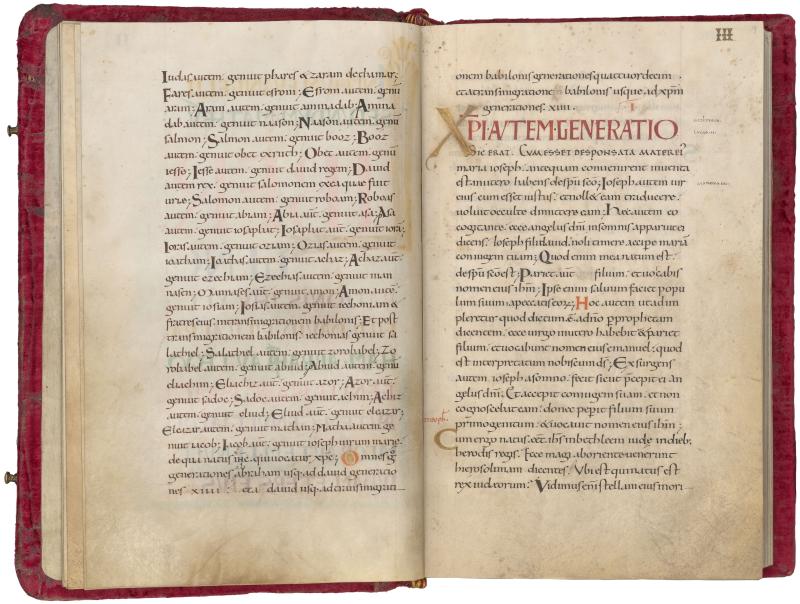 Iudas autem. genuit phares & zaram dechamar;
Fares autem. genuit esrom; Esrom autem. genuit
aram; Aram autem. genuit aminadab; Amina
dab autem. genuit naason; Naason autem. genuit
salmon; Salmon autem. genuit booz; Booz
autem. genuit obet exruth; Obet autem. genuit
iesse; Iesse autem. genuit david regem; David
autem rex. genuit salomonem exea quae fuit
uriae; Salomon autem. genuit roboam; Roboas
autem. genuit abiam; Abia aut. genuit asa; Asa
autem. genuit iosaphat; Iosaphat aut. genuit ioram;
Ioras autem. genuit oziam; Ozias autem. genuit
ioatham; Ioathas autem. genuit achaz; Achaz aut.
genuit ezechiam; Ezechias autem. genuit man
nasen; Manases aut. genuit amon; Amon autem.
genuit iosiam; Iosias autem. genuit iechoniam &
fratres eius intransmigrationem babilonis; Et post
transmigrationem babilonis. iechonias genuit sa
lathiel; Salathiel autem. genuit zorobabel; Zo
robabel autem. genuit abiud; Abiud autem. genuit
eliachim; Eliachiz aut. genuit azor; Azor aut.
genuit sadoc; Sadoc autem. genuit achim; Achiz
autem. genuit eliud; Eliud aut. genuit eleazar;
Eleazar autem. genuit mathan; Mathan autem ge
nuit iacob; Iacob aut. genuit ioseph uirum mariae.
de qua natus. ihc. qui uocatur. xpc; Omnes g
generationes abraham usq. ad david generatio
nes xiiii &a david usq. ad transmigrati
onem babilonis generationes quattuordecim.
&atransmigratione babilonis usque. ad xpm
generationes. xiiii.
I
XPI·AVTEM·GENERATIO
SIC ERAT. CUM ESSET DESPONSATA MATER EI'
maria ioseph. antequam conuenirent inuenta
est inutero habens despu sco; Ioseph autem uir
eius cum esset iustus. & noll& eam traducere.
uoluit occulte dimittere eam; Haec autem eo
cogitante. ecce angelus dni insomnis apparuit ei
dicens. Ioseph fili david. noli timere accipe mariam
coniugem tuam; Quod enim inea natum est.
despu sco est; Pariet aut filium. et uocabis
nomen eius ihm; Ipse enim saluum faciet popu
lum suum. apeccatis eoz; Hoc autem ut adim
pleretur quod dictum. e. adno pprophetam
dicentem. ecce uirgo inutero habebit & pariet
filium. et uocabunt nomen eius emanuel; quod
est interpretatum nobiscum ds; Exsurgens
autem ioseph asomno. fecit sicut pcepit ei an
gelus dni; Et accepit coniugem suam. et non
cognoscebat eam. donec pepit filium suum
primogenitum. & uocauit nomen eius ihm;
Cum ergo natus. eet. ihs inbethleem iudae indieb;
herodis regis. Ecce magi. aboriente uenerunt
hierosolimam dicentes. Ubi est qui natus est
rex iudeorum; Vidimus eni stellam eius inori